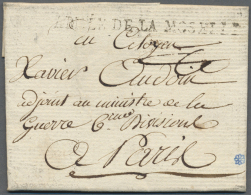 ARMÉE DE LA MOSELLE
au Citoyen
Xavier Audoin
adjoint au ministre de la
Guerre 6eme Division
A Paris